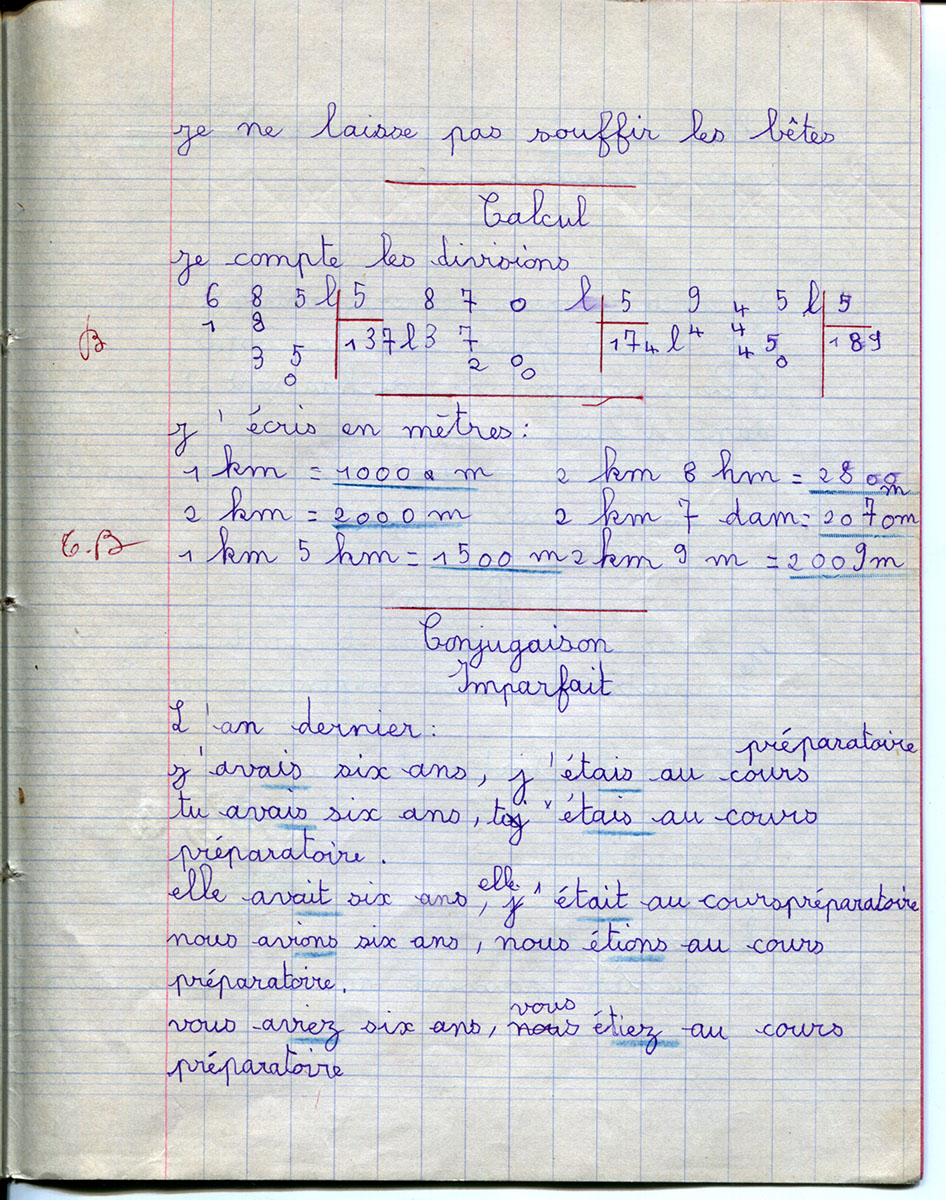 je ne laisse pas souffir les bêtes
Calcul
je compte les divisions
6 8 5 l 5 8 7 0 l 5 9 4 5 l 5
1 8 137 l 3 7 174 l 4 4 189
B
3 5 2 0 4 5
0 0 0
j'écris en mètres :
1 km = 1000 m 2 km 8 hm = 2800 m
2 km = 2000 m 2 km 7 dam = 2070m
T.B
1 km 5 hm = 1500 m 2 km 9 m = 2009m
Conjugaison
Imparfait
L'an dernier :
préparatoire
j'avais six ans, j'étais au cours
tu avais six ans, tu étais au cours
préparatoire.
elle avait six ans, elle j'était au cours préparatoire
nous avions six ans, nous étions au cours
préparatoire.
vous
vous aviez six ans, nous étiez au cours
préparatoire